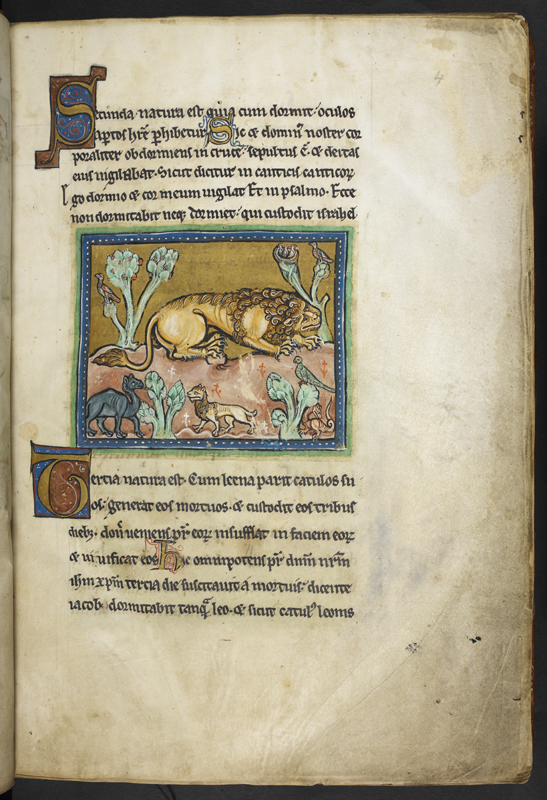 4
Secunda natura est quia cum dormit oculos
aptos hr̄e phibetur Sic & domin' noster cor
poraliter obdormiens in cruce sepultus ē. & deitas
eius uigilabat. Sicut dicitur in canticis canticor
Ego dormio & cor meum uigilat Et in psalmo. Ecce
non dormitabit neq; dormiet. qui custodit israhel
Tertia natura est. Cum leena parit catulos su
os. generat eos mortuos. & custodit eos tribus
dieb;. don' ueniens pr̄ eor̨ insufflat in faciem eor̨
& uiuificat eos Hic omnipotens pr̄ dnm̄ nr̄m
ihm xpm̄ tertia die suscitauit a mortuis. dicente
iacob. dormitabit tanq̄ leo. & sicut catul' leonis